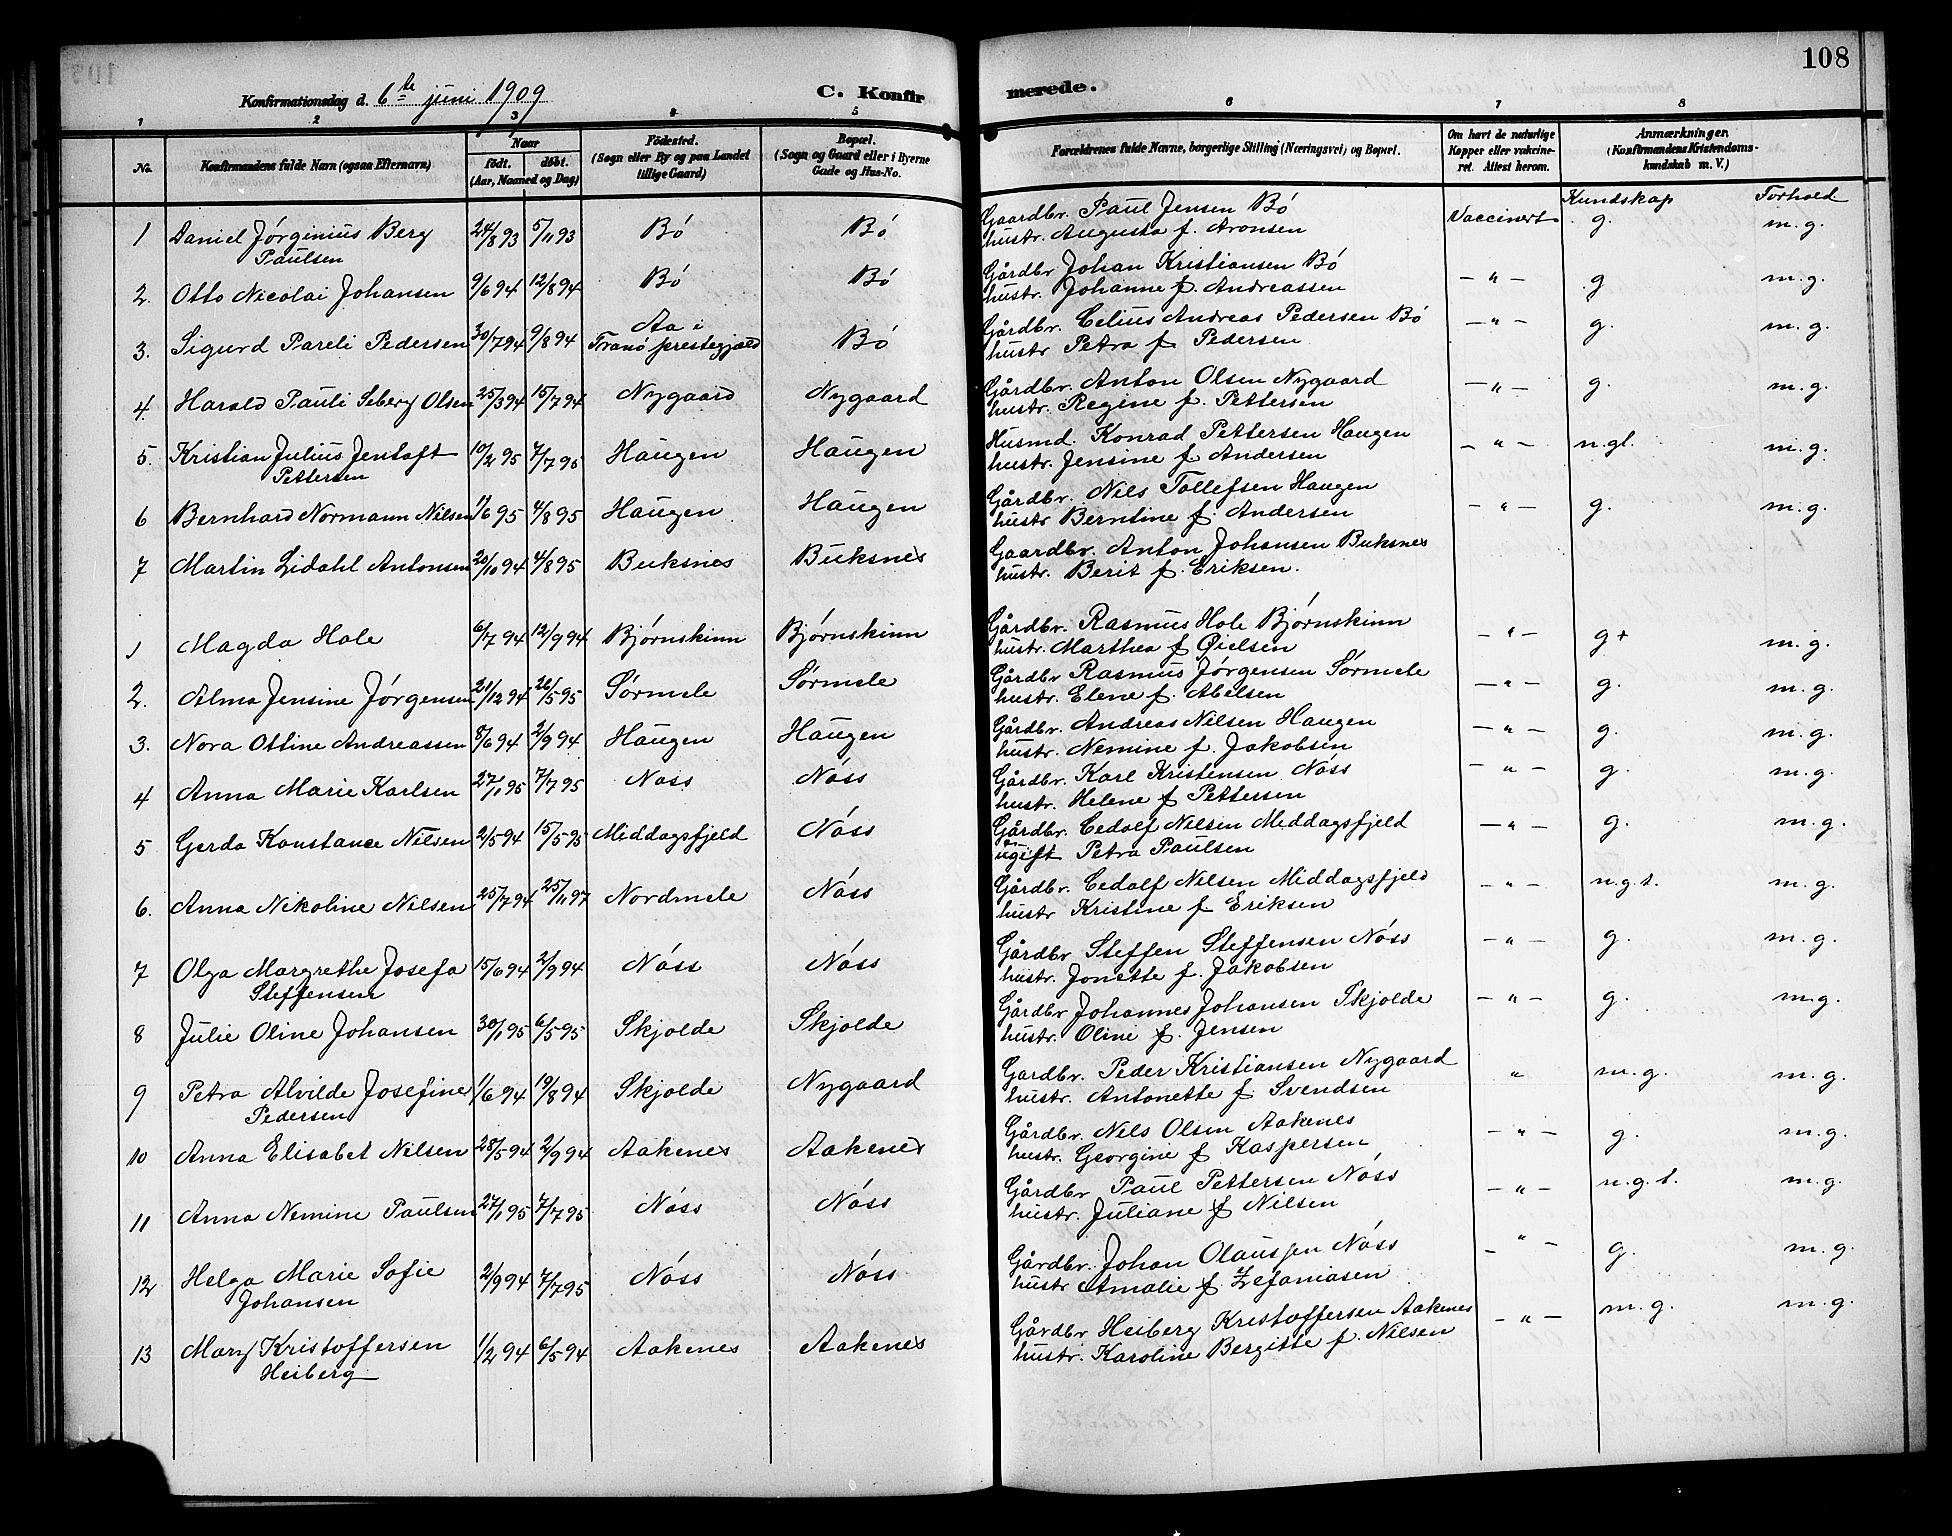 108
Konfirmationsdag d. 6te juni 1909
C. Konfirmerede.
1 2 3 4 5 6 7 8
No.
Konfirmandens fulde Navn (ogsaa Efternavn)
Naar
født. døbt.
(Aar, Maaned og Dag)
Födested.
(Sogn eller By og paa Landet
tillige Gaard)
Bopæl.
(Sogn og Gaard eller i Byerne
Gade og Hus-No.
Forældrenes fulde Navne, borgerlige Stilling (Næringsvei) og Bopæl.
Om havt de naturlige
Kopper eller vakcine-
ret. Attest herom.
Anmærkninger.
(Konfirmandens Kristendoms-
kundskab m. V.)
Kundskap Forhold
1 Daniel Jórginius Berg 24/8 93 5/11 93 Bó Bó Gaardbr. Paul Jensen Bó Vaccinert g. m.g.
Paulsen hustr. Augusta f. Aronsen
2. Otto Nicolai Johansen 9/6 94 12/8 94 Bó Bó Gårdbr Johan Kristiansen Bó -"- g m.g.
hustr. Johanne f. Andreassen
3. Sigurd Pareli Pedersen 30/7 94 9/8 94 Aa i Bó Gårdbr. Celius Andreas Pedersen Bó -"- g. m.g.
Tranó prestegjæld hustr Petra f Pedersen
4. Harald Pauli Seberg Olsen 25/3 94 15/7 94 Nygaard Nygaard Gårdbr. Anton Olsen Nygaard -"- g. m.g.
hustr. Regine f. Pettersen
5. Kristian Julius Jentoft 10/2 95 7/7 95 Haugen Haugen Husmd. Konrad Pettersen Haugen -"- n.gl. m.g.
Pettersen hustr. Jensine f. Andersen
6 Bernhard Normann Nilsen 1/6 95 4/8 95 Haugen Haugen Gårdbr. Nils Tollefsen Haugen -"- g. m.g.
hustr Berntine f. Andersen
7 Martin Lidahl Antonsen 20/10 94 4/8 95 Buksnes Buksnes Gaardbr. Anton Johansen Buksnes
hustr. Berit f. Eriksen.
1 Magda Hole 6/7 94 12/9 94 Bjórnskinn Bjórnskinn Gårdbr. Rasmus Hole Bjórnskinn -"- g+ m.g.
hustr. Marthea f Gielsen
2. Alma Jensine Jórgensen 21/12 94 26/5 95 Sórmele Sórmele Gårdbr Rasmus Jórgensen Sórmele -"- g. m.g.
hustr. Elene f. Abelsen
3. Nora Ottine Andreassen 8/6 94 2/9 94 Haugen Haugen Gårdbr. Andreas Nilsen Haugen -"- g. m.g.
hustr. Nemine f. Jakobsen
4 Anna Marie Karlsen 27/1 95 7/7 95 Noss Nóss Gårdbr. Karl Kristensen Nóss -"- g. m.g.
hustr. Helene f Pettersen
5 Gerda Konstance Nilsen 2/5 94 15/5 95 Middagsfjeld Nóss Gårdbr. Cedolf Nilsen Middagsfjeld -"- g. m.g.
ugift Petra Paulsen
6. Anna Nikoline Nilsen 25/7 94 25/11 97 Nordmele Nóss Gårdbr. Cedolf Nilsen Middagsfjeld -"- n.g.t. m.g.
hustr Kristine f. Eriksen
7 Olga Margrethe Josefa 15/6 94 2/9 94 Nóss Nóss Gårdbr. Steffen Steffensen Nóss -"- g. m.g.
Steffensen hustr. Jonette f. Jakobsen
8 Julie Oline Johansen 30/1 95 6/5 95 Skjolde Skjolde Gårdbr Johannes Johansen Skjolde -"- g. m.g.
hustr. Oline f. Jensen
9 Petra Alvilde Josefine 1/6 94 19/8 94 Skjolde Nygaard Gardbr. Peder Kristiansen Nygaard " m.g. m.g.
Pedersen hustr. Antonette f Svendsen
10 Anna Elisabet Nilsen 28/5 94 2/9 94 Aakenes Aakenes Gårdbr. Nils Olsen Aakenes -"- g. m.g.
hustr. Georgine f Kaspersen
11 Anna Nemine Paulsen 27/1 95 7/7 95 Nóss Nóss Gårdbr Paul Pettersen Nóss -"- n.g.t. m.g.
hustr. Juliane f Nilsen
12 Helga Marie Sofie 2/9 94 7/7 95 Nóss Nóss Gårdbr. Johan Olaussen Nóss -"- g. m.g.
Johansen hustr Amalie f. Zefaniasen
13 Mary Kristoffersen 1/2 94 6/5 94 Aakenes Aakenes Gårdbr Heiberg Kristoffersen Aakenes -"- m.g. m.g.
Heiberg hustr. Karoline Bergitte f. Nilsen